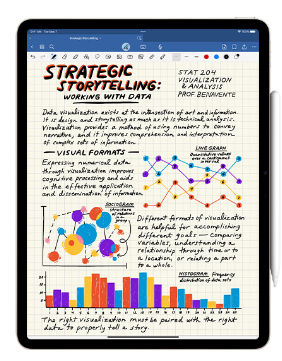 STRATEGIC
STORYTELLING:
WORKING WITH DATA
STAT 204
VISUALIZATION
& ANALYSIS
PROF BENAVENTE
Data visualization exists at the intersection of art and information.
It is design and storytelling as much as it is technical analysis.
Visualization provides a method of using numbers to convey
narrative, and it improves comprehension and interpretation
of complex sets of information.
— VISUAL FORMATS —
Expressing numerical data
through visualization improves
cognitive processing and aids
in the effective application
and dissemination of information.
LINE GRAPH
Quantitative value
over a continuous
interval
SOCIOGRAM
structure
of relations
in a
group
Different formats of visualization
are helpful for accomplishing
different goals — comparing
variables, understanding a
relationship through time or to
a location, or relating a part
to a whole.
HISTOGRAM Frequency
distribution of data sets
The right visualization must be paired with the right
data to properly tell a story.